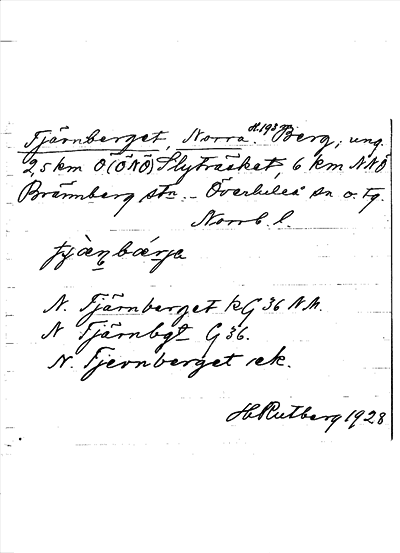 Tjärnberget, Norra. H. 193 m. Berg, ung.
2,5 km O (ÖNÖ) Slyträsket, 6 km NNÖ
Brännberg stn. Överluleå sn o. tg.
Norrb. l.
N. Tjärnberget kG 36 N.M.
N Tjärnbgt G 36.
N. Tjernberget ek.
H. Rutberg 1928